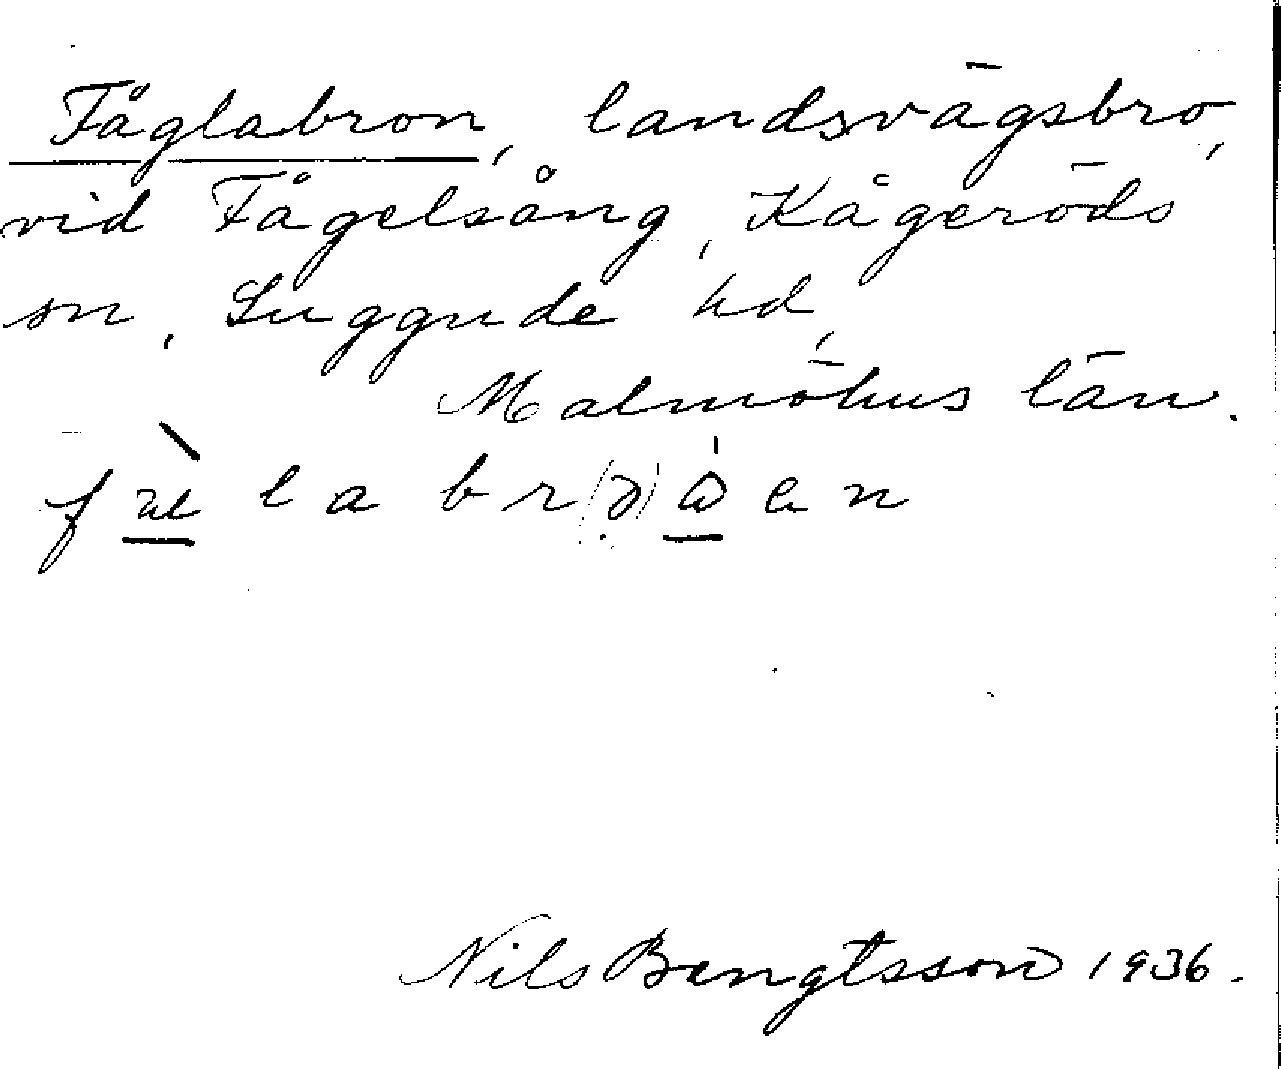 Fåglabron, landsvägsbro,
vid Fågelsång, Kågeröds
sn, Luggude hd,
Malmöhus län.
Nils Bengtsson 1936.